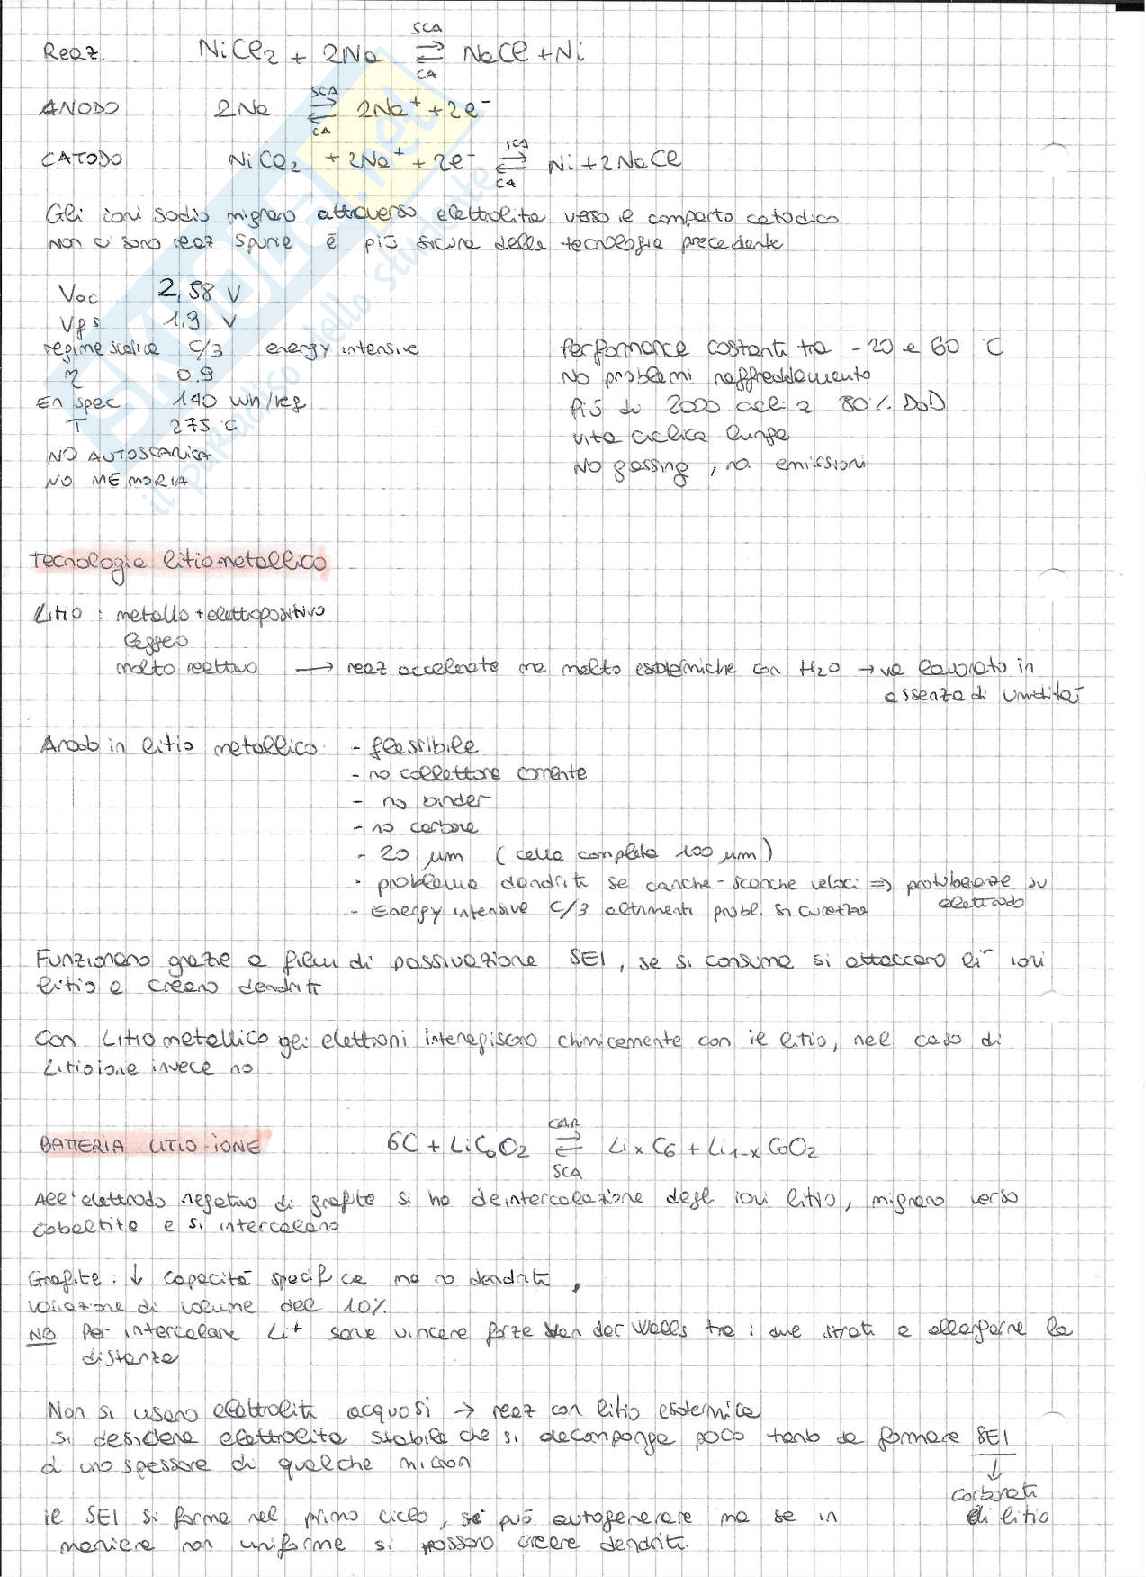 Reaz NiCl2 + 2Na ⇄ NaCl + Ni SCA CA
ANODO 2Na ⇄ 2Na+ + 2e- SCA CA
CATODO NiCl2 + 2Na+ + 2e- ⇄ Ni + 2NaCl CA
Gli ioni sodio migrano attraverso elettrolita verso il comparto catodico
Non ci sono reaz spurie è più sicura della tecnologia precedente
Voc 2,58 V
Vgs 1,9 V
regime scarica C/3 energy intensive
η 0.9
En spec 140 Wh/kg
T 275°C
NO AUTOSCARICA
NO MEMORIA
Performance costanti tra -20 e 60 °C
No problemi raffreddamento
Più di 2000 cicli a 80% DoD
vita ciclica lunga
No gassing, no emissioni
Tecnologia litio metallico
Litio: metallo + elettropositivo
leggero
molto reattivo → reaz accelerate ma molto esotermiche con H2O → va lavorato in
assenza di umidità
Anodo in litio metallico: - flessibile
- no collettore corrente
- no binder
- no carbone
- 20 μm (cella completa 100 μm)
- problema dendriti se cariche-scariche veloci ⇒ protuberanze su
elettrodo
- Energy intensive C/3 altrimenti probl. sicurezza
Funzionano grazie a film di passivazione SEI, se si consuma si attaccano lì ioni
litio e creano dendriti
Con Litio metallico gli elettroni interagiscono chimicamente con il litio, nel caso di
Litioione invece no
BATTERIA LITIO-IONE 6C + LiCoO2 ⇄ LixC6 + Li1-xCoO2 CAR SCA
All'elettrodo negativo di grafite si ha deintercalazione degli ioni litio, migrano verso
cobaltite e si intercalano
Grafite: ↓ capacità specifica ma no dendriti,
variazione di volume del 10%
NB Per intercalare Li+ serve vincere forze Van der Walls tra i due strati e allargarne la
distanza
Non si usano elettroliti acquosi → reaz con litio esotermica
Si desidera elettrolita stabile che si decomponga poco tanto da formare SEI
di uno spessore di qualche micron
↓
carbonati
di litio
il SEI si forma nel primo ciclo, si può autogenerare ma se in
maniera non uniforme si possono creare dendriti.